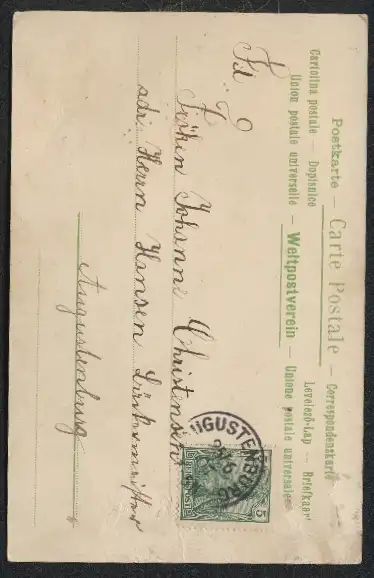 Postkarte — Carte Postale — Correspondenzkarte
Cartolina postale — Dopisnice Levelező-Lap — Briefkaart
Union postale universelle — Weltpostverein — Unione postale universale
Fröken Johanne Christensen
adr. Herrn Hansen
Augustenburg
AUGUSTENBURG
5